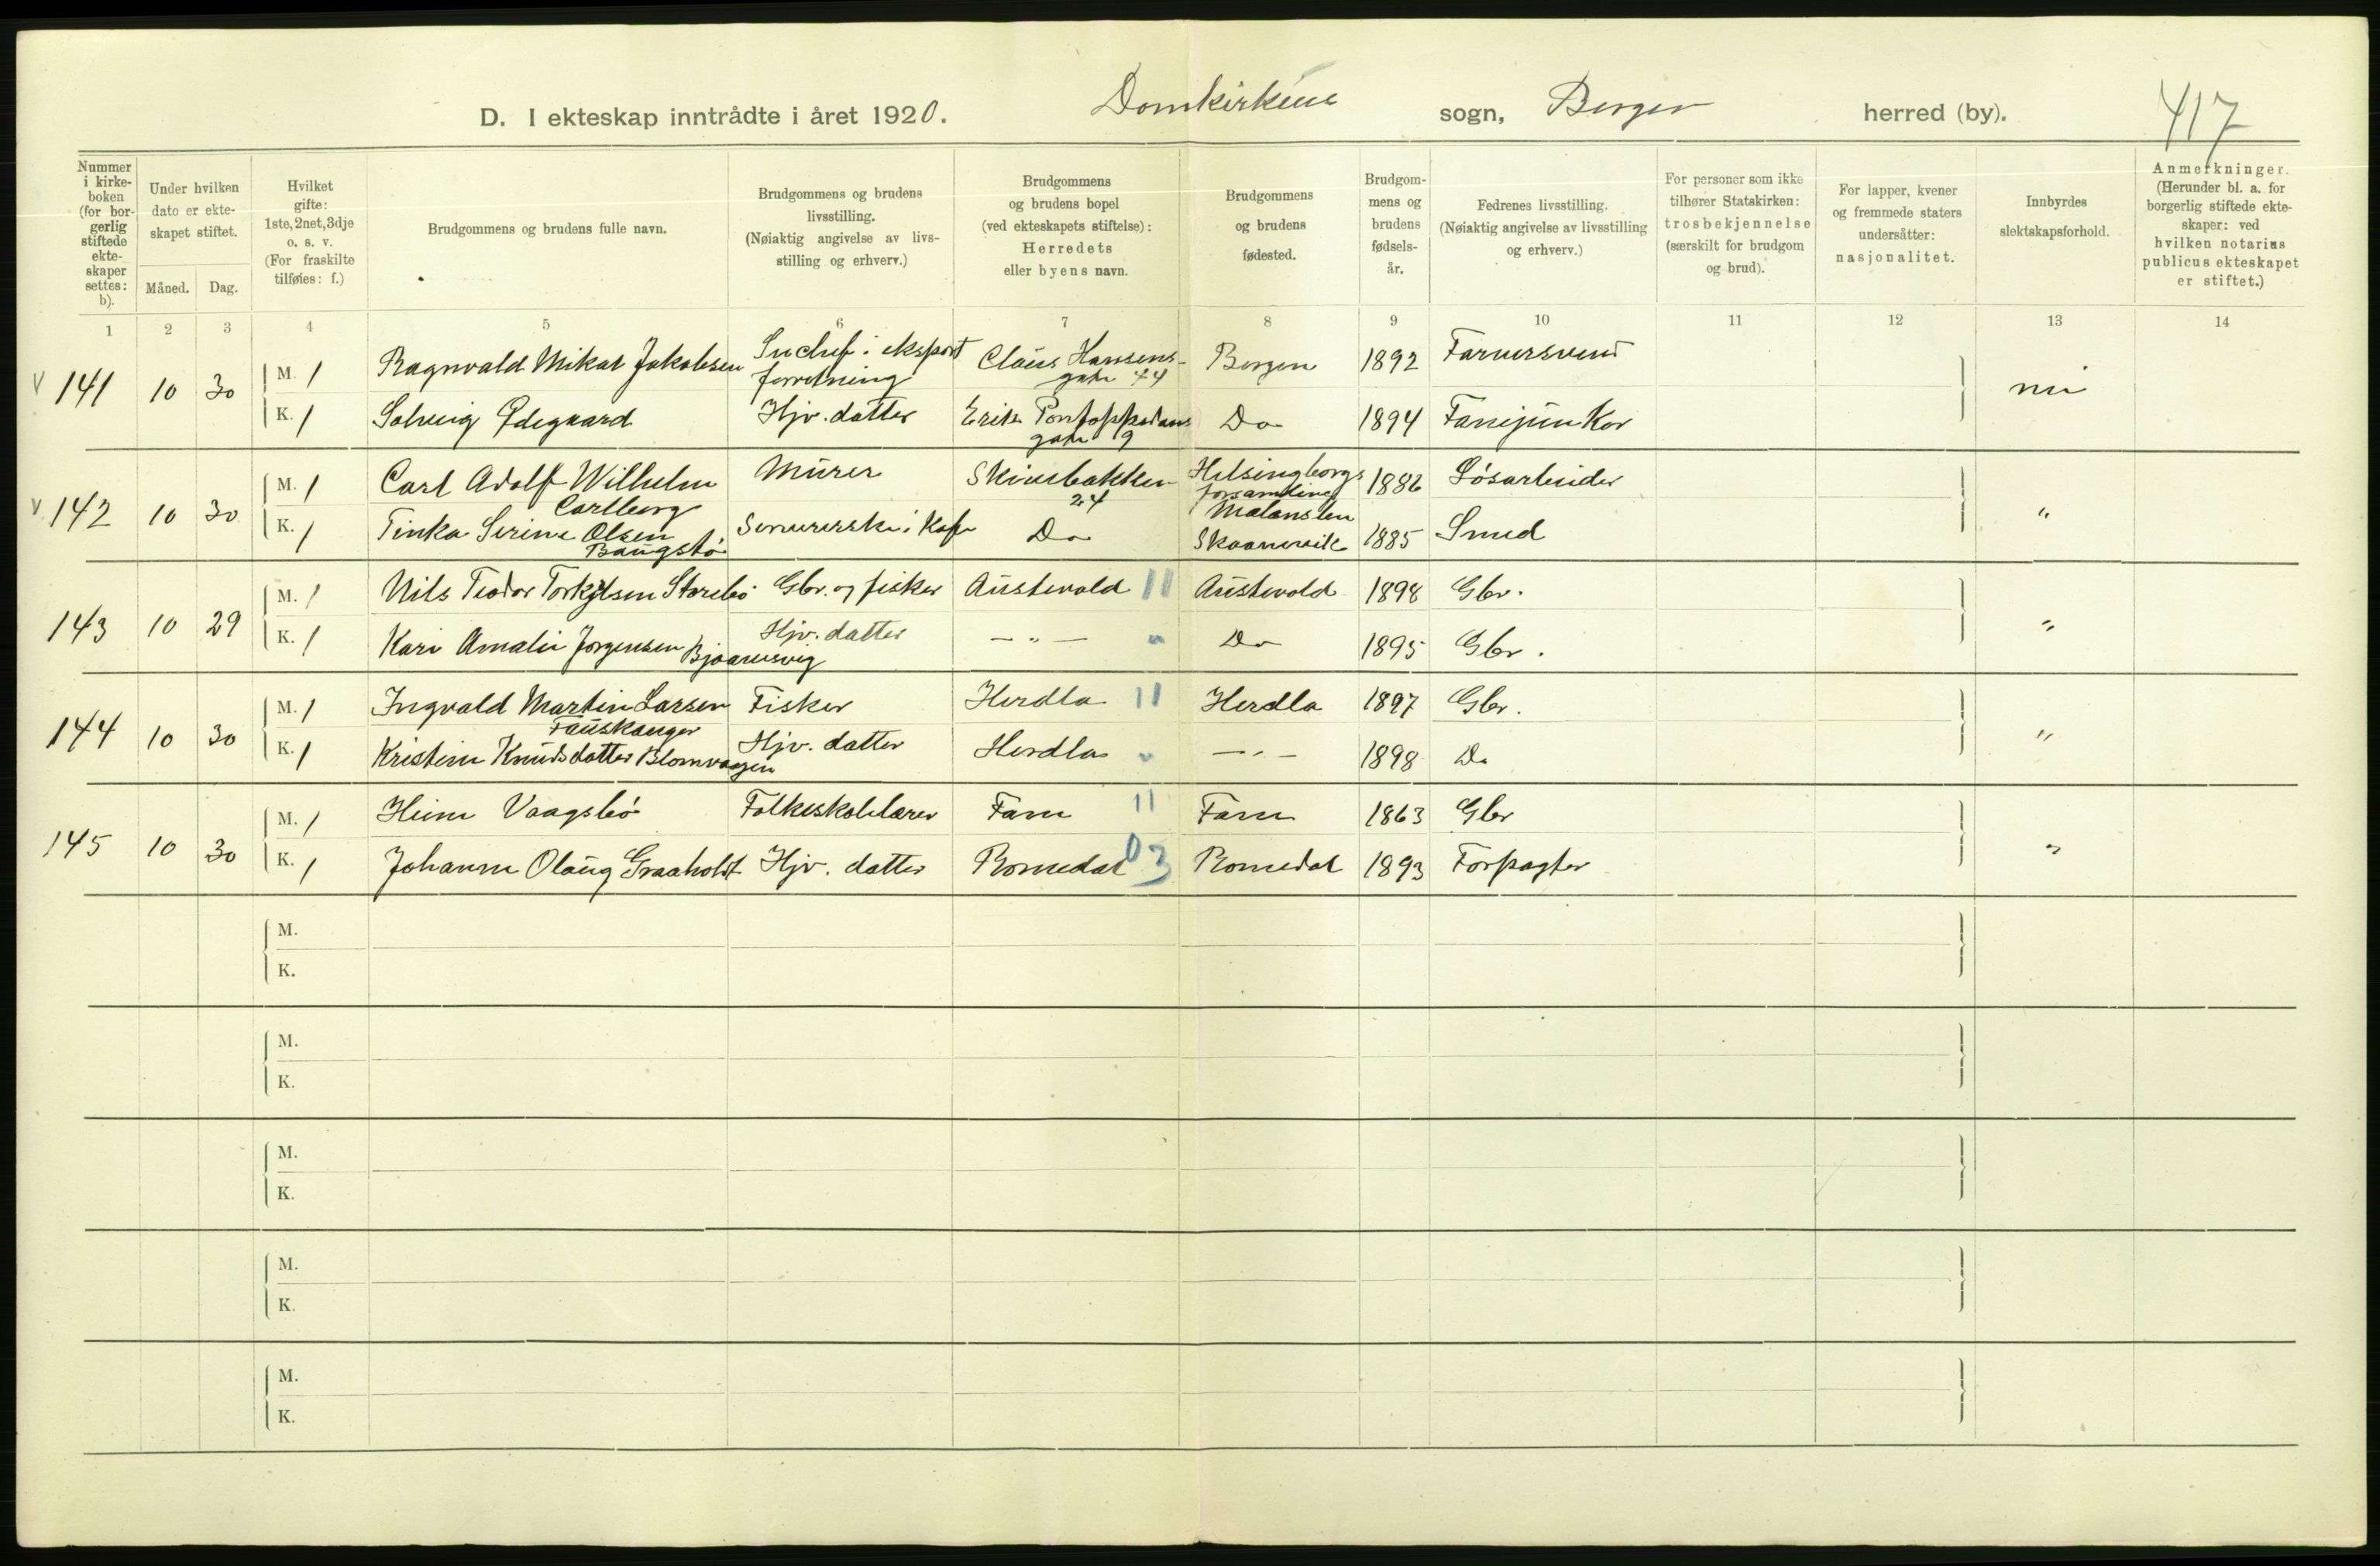 D. I ekteskap inntrådte i året 1920. Domkirkens sogn, Bergen herred (by). 417
Nummer i kirke-boken (for bor-gerlig stiftede ekte-skaper settes: b).
Under hvilken dato er ekte-skapet stiftet.
Måned. Dag.
Hvilket gifte: 1ste, 2net, 3dje o. s. v. (For fraskilte tilføies: f.)
Brudgommens og brudens fulle navn.
Brudgommens og brudens livsstilling. (Nøiaktig angivelse av livs-stilling og erhverv.)
Brudgommens og brudens bopel (ved ekteskapets stiftelse): Herredets eller byens navn.
Brudgommens og brudens fødested.
Brudgom-mens og brudens fødsels-år.
Fedrenes livsstilling. (Nøiaktig angivelse av livsstilling og erhverv.)
For personer som ikke tilhører Statskirken: trosbekjennelse (særskilt for brudgom og brud).
For lapper, kvener og fremmede staters undersåtter: nasjonalitet.
Innbyrdes slektskapsforhold.
Anmerkninger. (Herunder bl. a. for borgerlig stiftede ekte-skaper: ved hvilken notarius publicus ekteskapet er stiftet.)
1 2 3 4 5 6 7 8 9 10 11 12 13 14
v 141 10 30 M. 1 Ragnvald Mikal Jakobsen i eksport forretning Claus Hansens-gate 44 Bergen 1892 Farversvend nei
K. 1 Solveig Ødegaard Hjv. datter Erik Pontoppidans gate 9 Do 1894 Fanejunker
v 142 10 30 M. 1 Carl Adolf Wilhelm Carlberg Murer Skivebakken 24 Helsingborgs forsamling 1886 Løsarbeider "
K. 1 Tinka Serine Olsen Baugstø Serverske i Kafe Do Skaanevik 1885 Smed
143 10 29 M. 1 Nils Teodor Torkilsen Storebø Gbr. og fisker Austevold 11 Austevold 1898 Gbr. "
K. 1 Kari Amalie Jørgensen Bjaanesvig Hjv. datter — " — " Do 1895 Gbr.
144 10 30 M. 1 Ingvald Martin Larsen Fauskanger Fisker Herdla 11 Herdla 1897 Gbr. "
K. 1 Kristine Knudsdatter Blomvaagen Hjv. datter Herdla " — " — 1898 Do
145 10 30 M. 1 Heine Vaagsbø Folkeskolelærer Fane 11 Fane 1863 Gbr "
K. 1 Johanne Olaug Graaholdt Hjv. datter Romedal 03 Romedal 1893 Forpagter
M.
K.
M.
K.
M.
K.
M.
K.
M.
K.